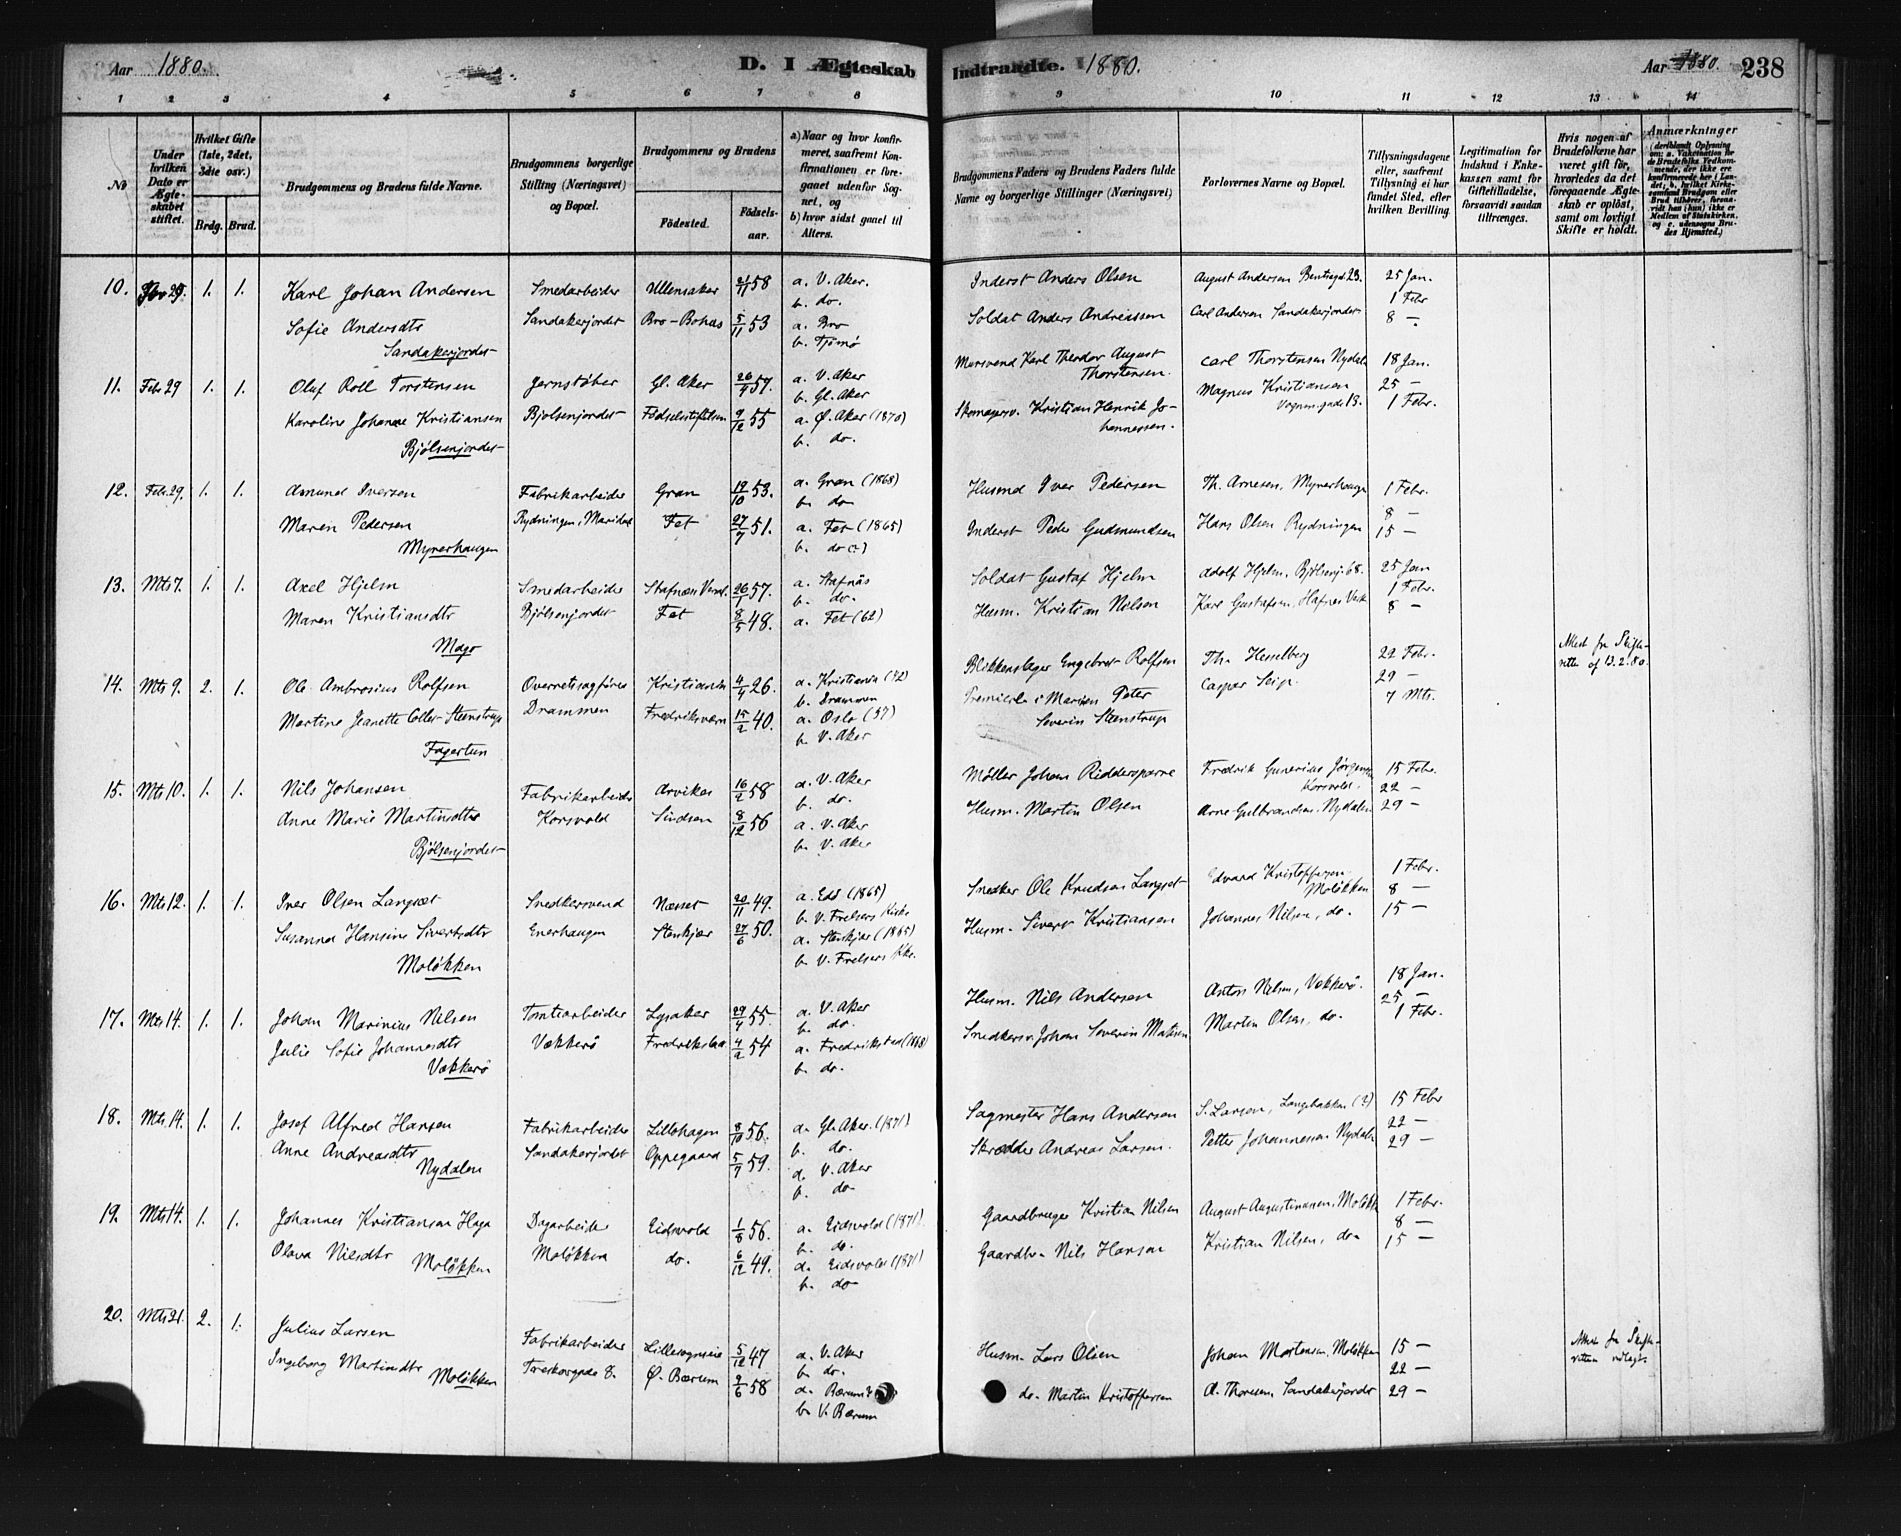 Aar 1880.
D. I Ægteskab Indtraadte. 1880.
Aar 1880. 238
1 2 3 4 5 6 7 8 9 10 11 12 13 14
No
Under hvilken Dato er Ægteskabet stiftet.
Hvilket Gifte (1ste, 2det, 3die osv.)
Brdg. Brud.
Brudgommens og Brudens fulde Navne.
Brudgommens borgerlige Stilling (Næringsvei) og Bopæl.
Brudgommens og Brudens
Födested.
Födselsaar.
a) Naar og hvor konfirmeret, saafremt Konfirmationen er foregaaet udenfor Sognet, og
b) hvor sidst gaaet til Alters.
Brudgommens Faders og Brudens Faders fulde Navne og borgerlige Stillinger (Næringsvei)
Forlovernes Navne og Bopæl.
Tillysningsdagene eller, saafremt Tillysning ei har fundet Sted, efter hvilken Bevilling.
Legitimation for Indskud i Enkekassen samt for Giftetilladelse, forsaavidt saadan tiltrænges.
Hvis nogen af Brudefolkene har været gift för, hvorledes da det foregaaende Ægteskab er oplöst, samt om lovligt Skifte er holdt.
Anmærkninger
10. Febr 29. 1. 1. Karl Johan Andersen Smedarbeider Ullensaker 21/11 58 a. V. Aker. b. do. Inderst Anders Olsen August Andersen 25 Jan.
1 Febr
Sofie Andersdtr Sandakerjordet Bro-Bohus 5/11 53 a. Bro b. Tjömö Soldat Anders Andreassen Carl Andersen Sandakerjordet 8 –
Sandakerjordet
11. Febr 29 1. 1. Oluf Roll Torstensen Jernstöber Gl. Aker 26/9 57. a. V. Aker b. Gl. Aker Mursvend Karl Theodor August Thorstensen. Carl Thorstensen Nydalen 18 Jan.
Karoline Johanne Kristiansen Bjolsenjordet Födselsstiftelsen 9/12 55 a. Ø. Aker (1870) b. do. Skomagersv. Kristian Henrik Johannessen. Magnus Kristiansen Vognmgade 13. 25 –
1 Febr.
Bjölsenjordet
12. Febr. 29. 1. 1. Amund Iversen Fabrikarbeider Gran 19/10 53. a. Gran (1868) b. do Husmd Iver Pedersen Th. Arnesen, Myrerhaugen 1 Febr.
8 –
Maren Pedersen Rydningen, Maridal Fet 27/7 51. a. Fet (1865) b. do (?) Inderst Peder Gudmundsen Hans Olsen Rydningen 15 –
Myrerhaugen
13. Mts 7. 1. 1. Axel Hjelm Smedarbeider 26/1 57. a. Stafnäs b. do. Soldat Gustaf Hjelm Adolf Hjelm, Bjölsenj. 68. 25 Jan
1 Febr.
Maren Kristiansdtr Bjölsenjordet Fet 8/5 48. a. Fet (62) Husm. Kristian Nilsen Karl Gustafsen, 8 –
Mago
14. Mts 9. 2. 1. Ole Ambrosius Rolfsen Overretssagförer Kristiania 4/9 26. a. Kristiania (42) b. Drammen Blikkenslager Engebret Rolfsen Th. Hesselberg 22 Febr. Attest fra Skifteretten af 13.2.80.
Martine Jeanette Coller Steenstrup Drammen Fredriksværn 15/2 40. a. Oslo (57) b. V. Aker Premierl. i Marinen Peter Severin Steenstrup Casper Seip. 29 –
7 Mts.
Fagertun
15. Mts 10. 1. 1. Nils Johansen Fabrikarbeider Arvika 16/2 58 a. V. Aker b. do. Möller Johan Riddersparre Fredrik Gunerius Jörgensen Korsvold. 15 Febr.
22 –
Anne Marie Martinsdtr Korsvold 8/12 56 a. V. Aker b. V. Aker Husm. Martin Olsen Arne Gulbrandsen, Nydalen 29 –
Bjölsenjordet
16. Mts 12. 1. 1. Iver Olsen Langset Snedkersvend Næsset 20/11 49. a. Eds (1865) b. V. Frelsers Kirke Snedker Ole Knudsen Langset Edvard Kristoffersen Molökken 1 Febr.
8 –
Susanna Hansine Sivertsdtr Enerhaugen Stenkjær 27/6 50. a. Stenkjær (1865) b. V. Frelsers Kke. Husm. Sivert Kristiansen Johannes Nilsen, do. 15 –
Molökken
17. Mts 14. 1. 1. Johan Marinius Nilsen Tomtearbeider Lysaker 29/4 55. a. V. Aker b. do. Husm. Nils Andersen Anton Nilsen, Vækkerö. 18 Jan.
25 –
Julie Sofie Johannesdtr Vækkerö Fredrikstad 4/2 54 a. Fredrikstad (1868) b. do. Snedkersv. Johan Severin Martin Olsen, do. 1 Febr.
Vækkerö
18. Mts. 14. 1. 1. Josef Alfred Hansen Fabrikarbeider Lillehagen 8/10 56. a. Gl. Aker. (1871) b. do. Sagmester Hans Andersen S. Larsen, Langbakken (?) 15 Febr
22 –
Anne Andreasdtr Sandakerjordet Oppegaard 5/7 59. a. V. Aker b. do Skrædder Andreas Larsen. Petter Johannessen Nydalen 29 –
Nydalen
19. Mts 14. 1. 1. Johannes Kristiansen Haga Dagarbeider Eidsvold 1/8 56. a. Eidsvold (1871) b. do. Gaardbruger Kristian Nilsen August Augustinussen, Molökk 1 Febr.
8 –
Olava Nilsdtr Molökken do. 6/12 49. a. Eidsvold (1871) b. do Gaardbr. Nils Hansen Kristian Nilsen, do. 15 –
Molökken
20. Mts 21. 2. 1. Julius Larsen Fabrikarbeider Lillesognseie 5/12 47 a. V. Aker b. do. Husm. Lars Olsen Johan Mortensen, Molökken 15 – Attest fra Skifteretten udlagt.
22 –
Ingeborg Martinsdtr 8. Ø. Bærum 2/6 58 a. Bærum b. V. Bærum do. Martin Kristoffersen A. Thoresen, Sandakerjordet 29 –
Molökken